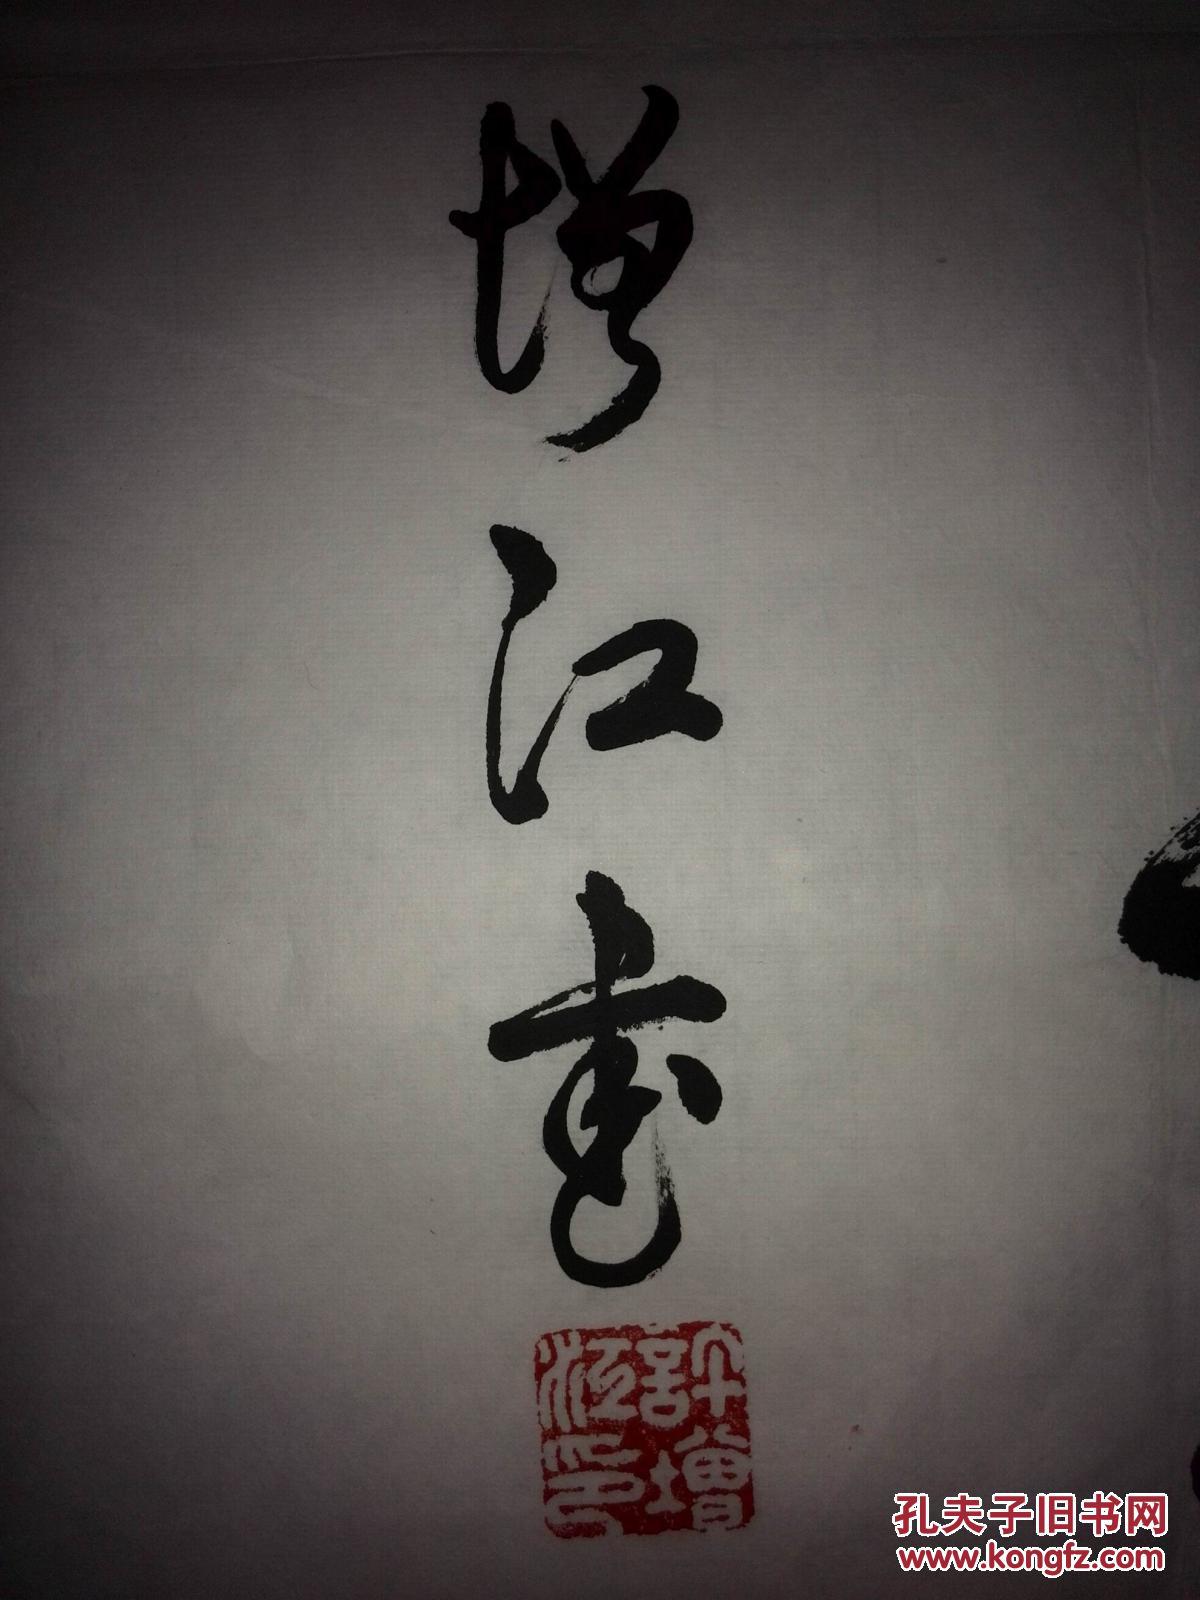 增江书
許增
江印
孔夫子旧书网
www.kongfz.com